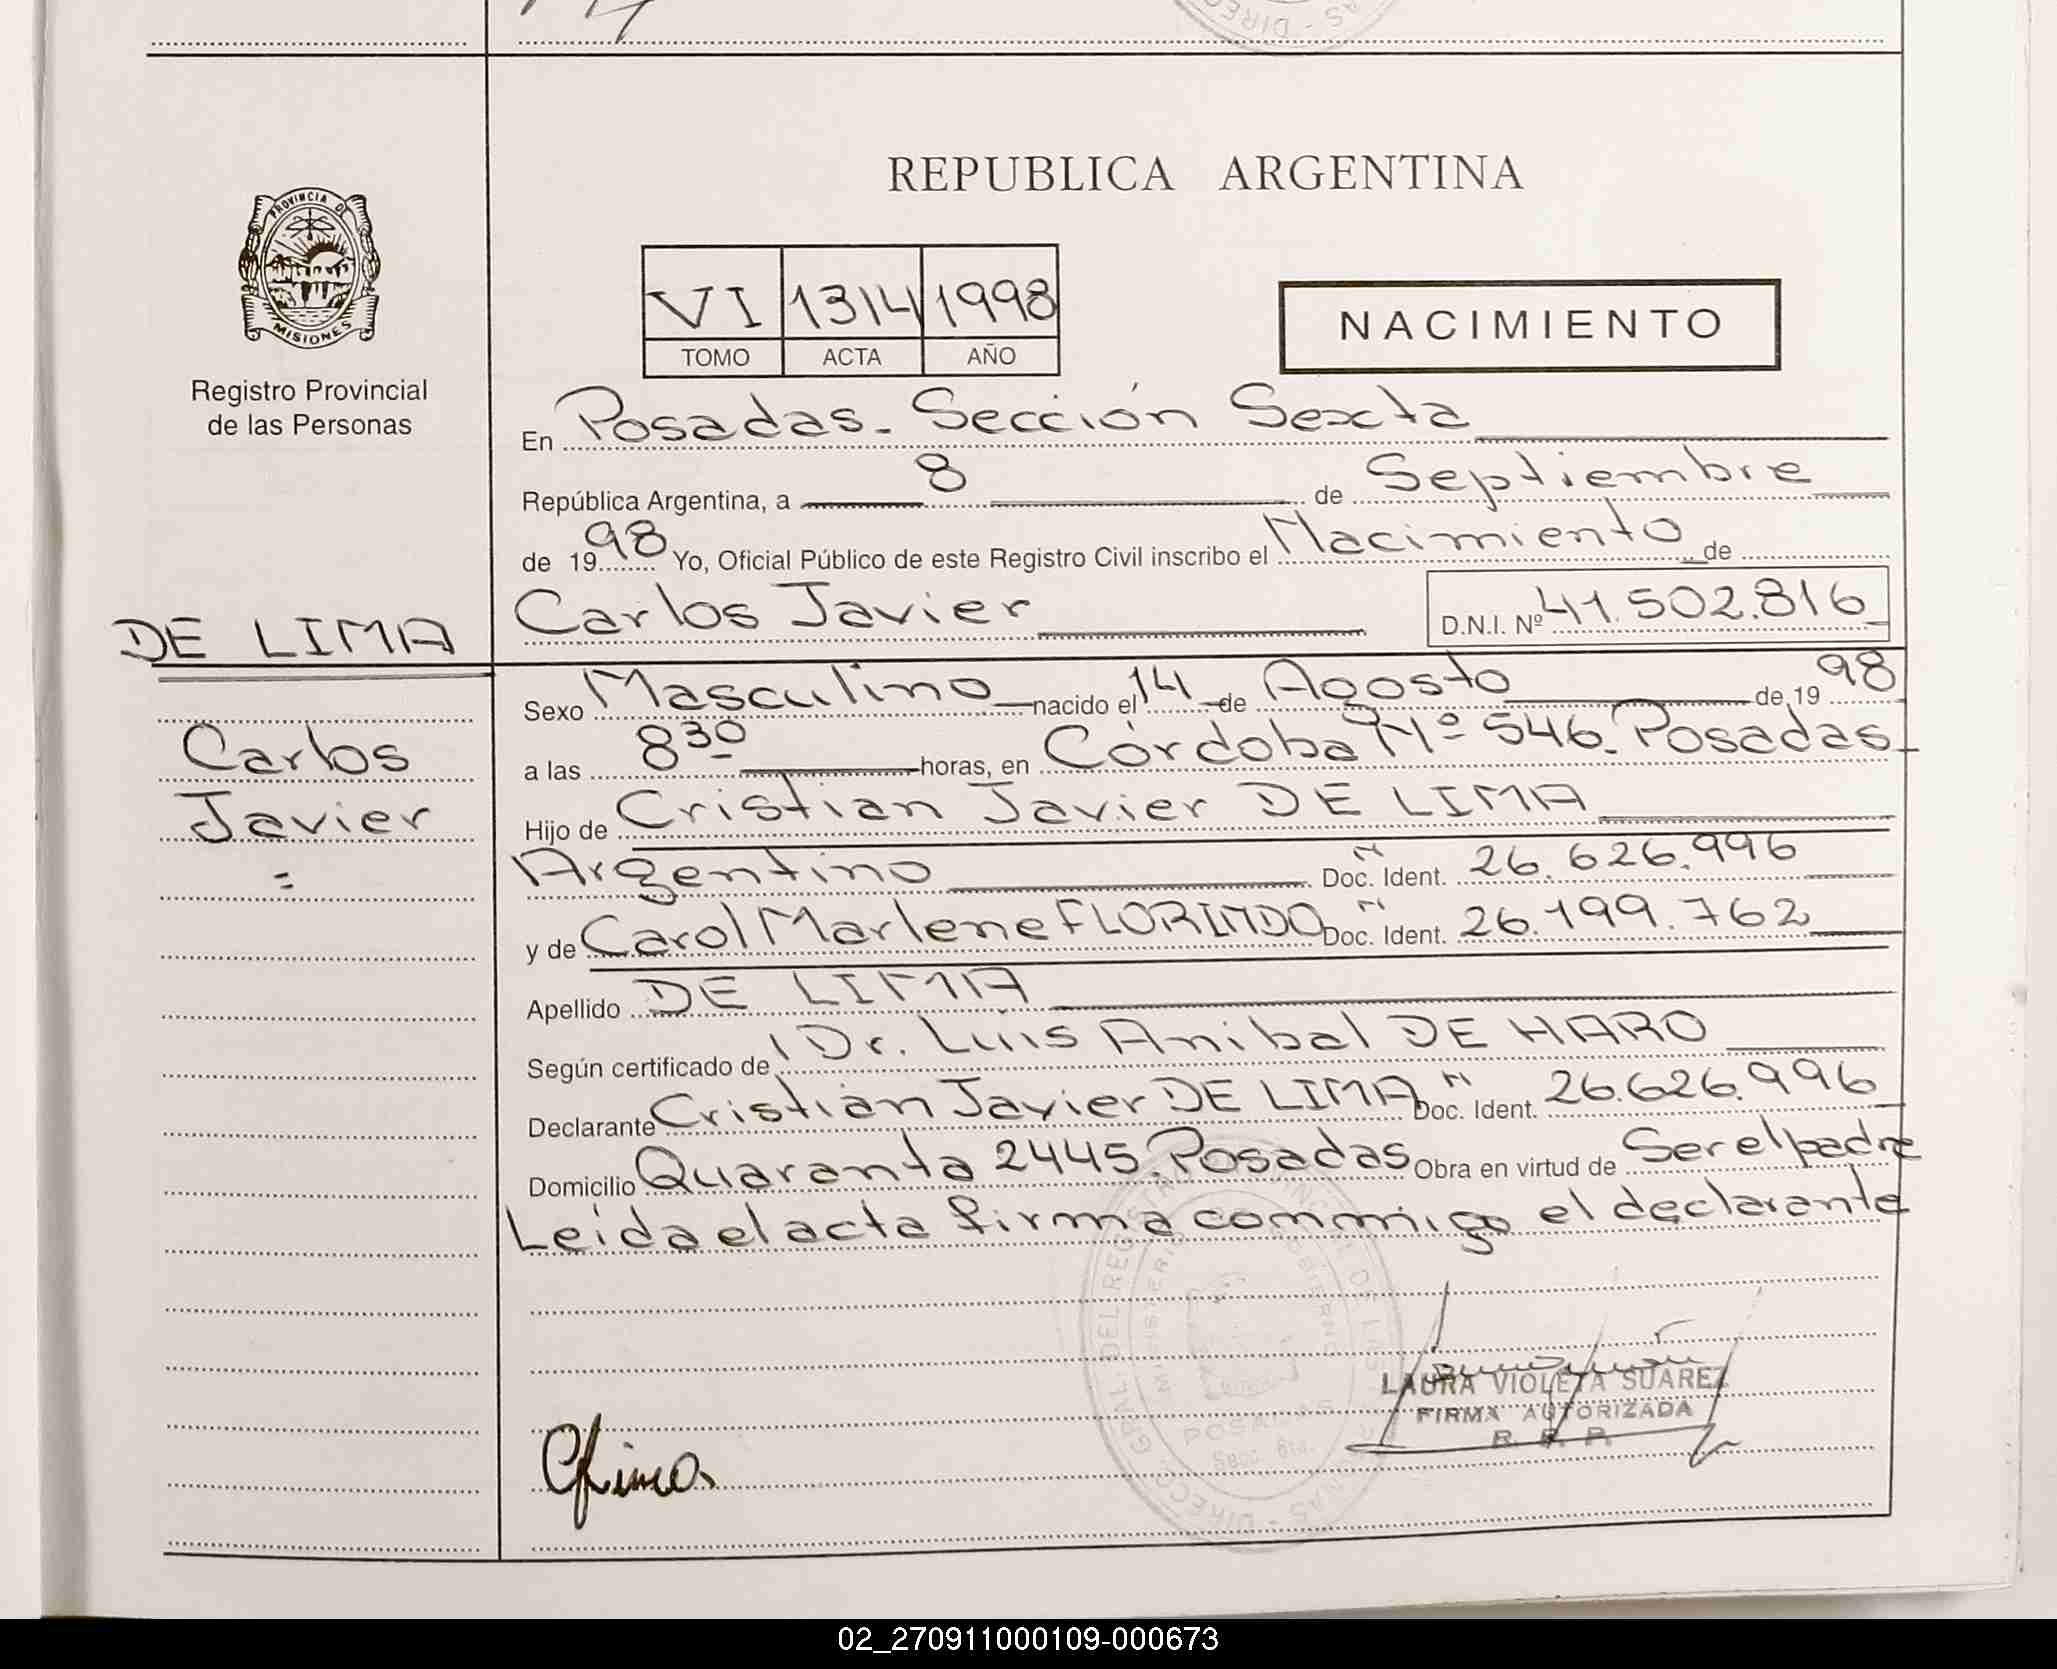 REPUBLICA ARGENTINA
PROVINCIA DE
MISIONES
Registro Provincial
de las Personas
VI 1314 1998
TOMO ACTA AÑO
NACIMIENTO
En Posadas. Sección Sexta
República Argentina, a 8 de Septiembre
de 1998 Yo, Oficial Público de este Registro Civil inscribo el Nacimiento de
Carlos Javier D.N.I. Nº 41.502.816
DE LIMA
Carlos
Javier
=
Sexo Masculino nacido el 14 de Agosto de 19 98
a las 8 30 horas, en Córdoba Nº 546. Posadas
Hijo de Cristian Javier DE LIMA
Argentino Doc. Ident. N 26.626.996
y de Carol Marlene FLORINDO Doc. Ident. N 26.199.762
Apellido DE LIMA
Según certificado de Dr. Luis Anibal DE HARO
Declarante Cristian Javier DE LIMA Doc. Ident. N 26.626.996
Domicilio Quaranta 2445. Posadas Obra en virtud de Ser el padre
Leida el acta firma conmigo el declarante
LAURA VIOLETA SUAREZ
FIRMA AUTORIZADA
R. P. P.
POSADAS
Secc. 6ta.
02_270911000109-000673